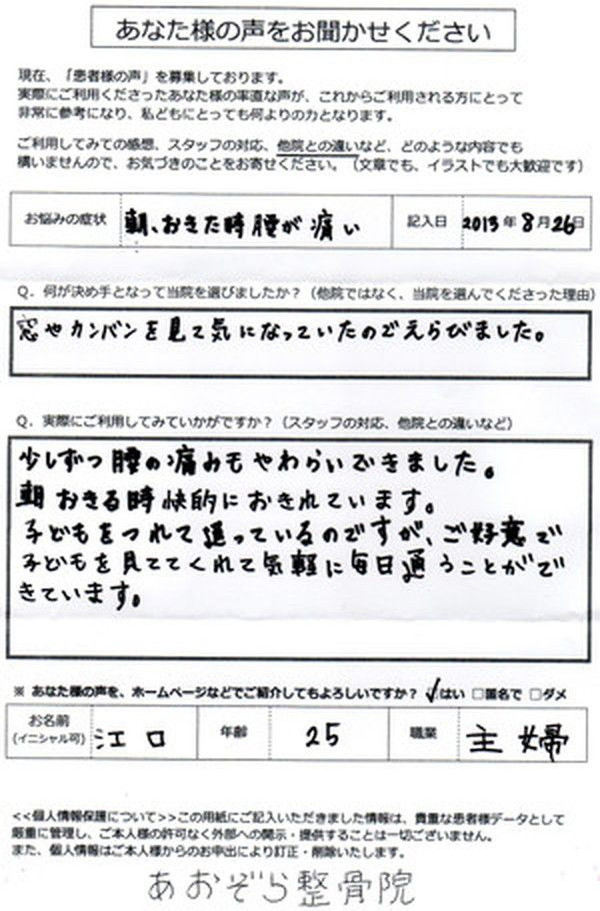 あなた様の声をお聞かせください
現在、「患者様の声」を募集しております。
実際にご利用くださったあなた様の率直な声が、これからご利用される方にとって
非常に参考になり、私どもにとっても何よりの力となります。
ご利用してみての感想、スタッフの対応、他院との違いなど、どのような内容でも
構いませんので、お気づきのことをお寄せください。（文章でも、イラストでも大歓迎です）
お悩みの症状 朝、おきた時腰が痛い 記入日 2013年8月26日
Q．何が決め手となって当院を選びましたか？（他院ではなく、当院を選んでくださった理由）
窓やカンバンを見て気になっていたのでえらびました。
Q．実際にご利用してみていかがですか？（スタッフの対応、他院との違いなど）
少しずつ腰の痛みもやわらいできました。
朝おきる時快的におきれています。
子どもをつれて通っているのですが、ご好意で
子どもを見ててくれて気軽に毎日通うことがで
きています。
※ あなた様の声を、ホームページなどでご紹介してもよろしいですか？ ✓はい □匿名で □ダメ
お名前 (イニシャル可) 江口 年齢 25 職業 主婦
<<個人情報保護について>>この用紙にご記入いただきました情報は、貴重な患者様データとして
厳重に管理し、ご本人様の許可なく外部への開示・提供することは一切ございません。
また、個人情報はご本人様からのお申出により訂正・削除いたします。
あおぞら整骨院